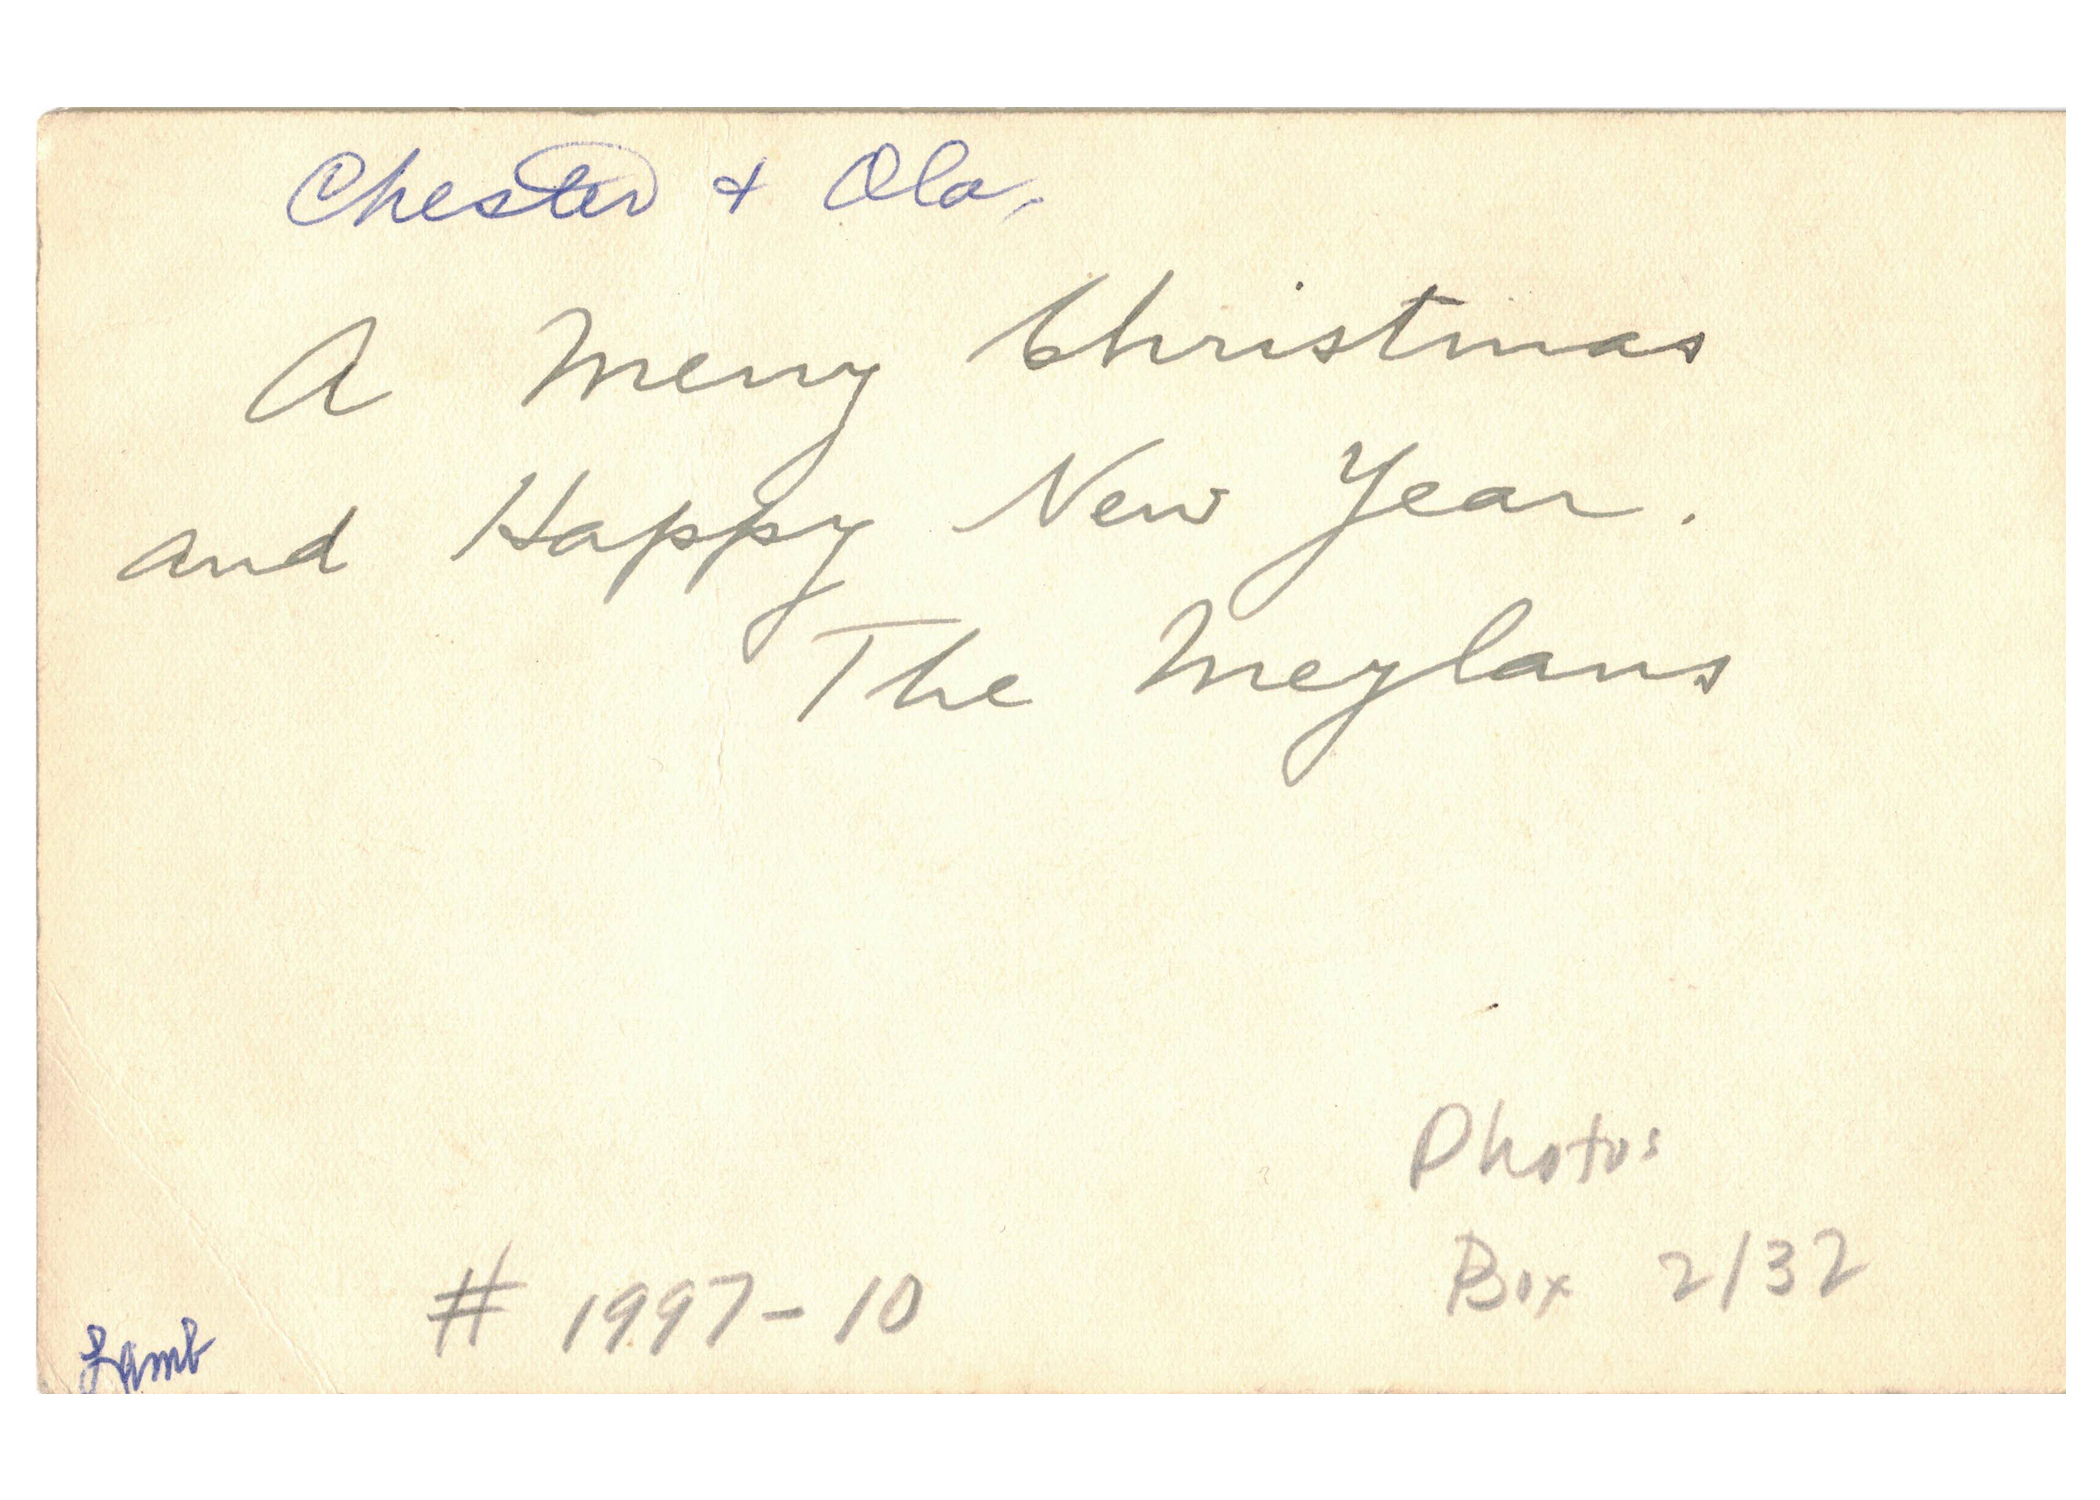 Chester + Ola,
A Merry Christmas
and Happy New Year.
The Meylans
Photos
Box 2/32
# 1997-10
Lamb